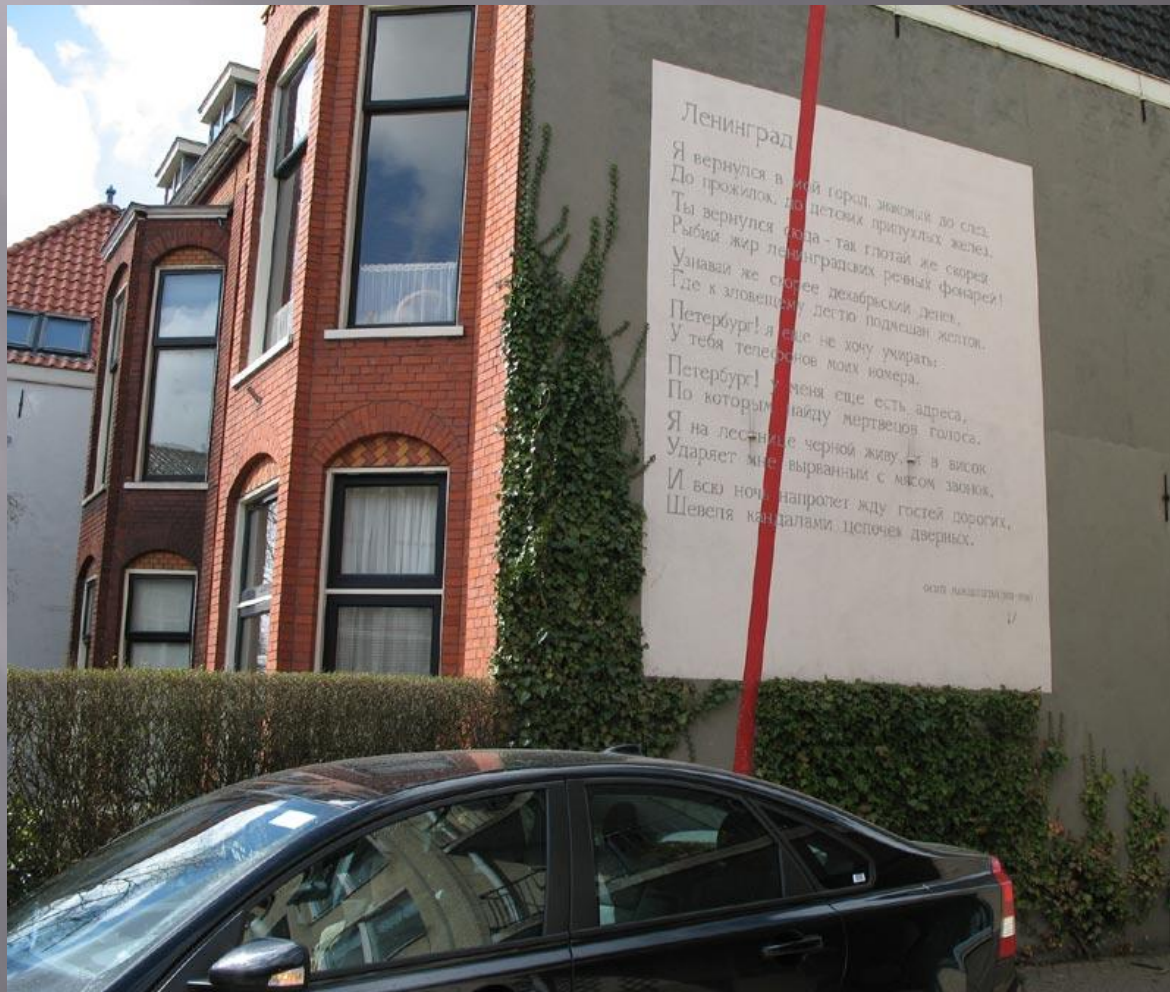 Ленинград
Я вернулся в мой город, знакомый до слез,
До прожилок, до детских припухлых желез.
Ты вернулся сюда - так глотай же скорей
Рыбий жир ленинградских речных фонарей!
Узнавай же скорее декабрьский денек,
Где к зловещему дегтю подмешан желток.
Петербург! я еще не хочу умирать:
У тебя телефонов моих номера.
Петербург! У меня еще есть адреса,
По которым найду мертвецов голоса.
Я на лестнице черной живу, и в висок
Ударяет мне вырванный с мясом звонок,
И всю ночь напролет жду гостей дорогих,
Шевеля кандалами цепочек дверных.